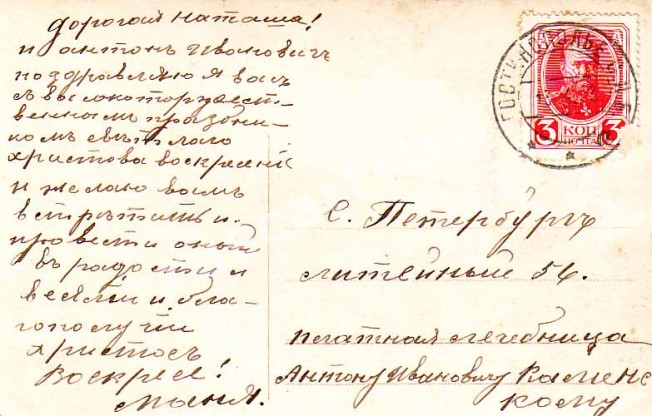 дорогая Наташа!
и антонъ Ивановичъ
поздравляю я васъ
съ высокоторжест-
веннымъ праздни-
комъ свѣтлаго
христова воскресенія
и желаю вамъ
встрѣтить и
провести оный
въ радости и
веселіи и бла-
гополучіи
христосъ
Воскресе!
Маня.
С. Петербургъ
литейный 56.
платная лечебница
Антону Ивановичу Каменс
кому
3 КОП 3
ПОЧТА